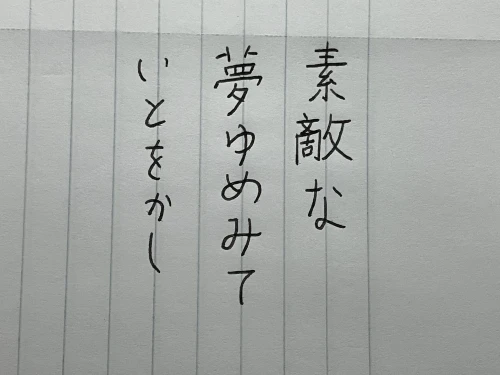 素敵な
夢ゆめみて
いとをかし